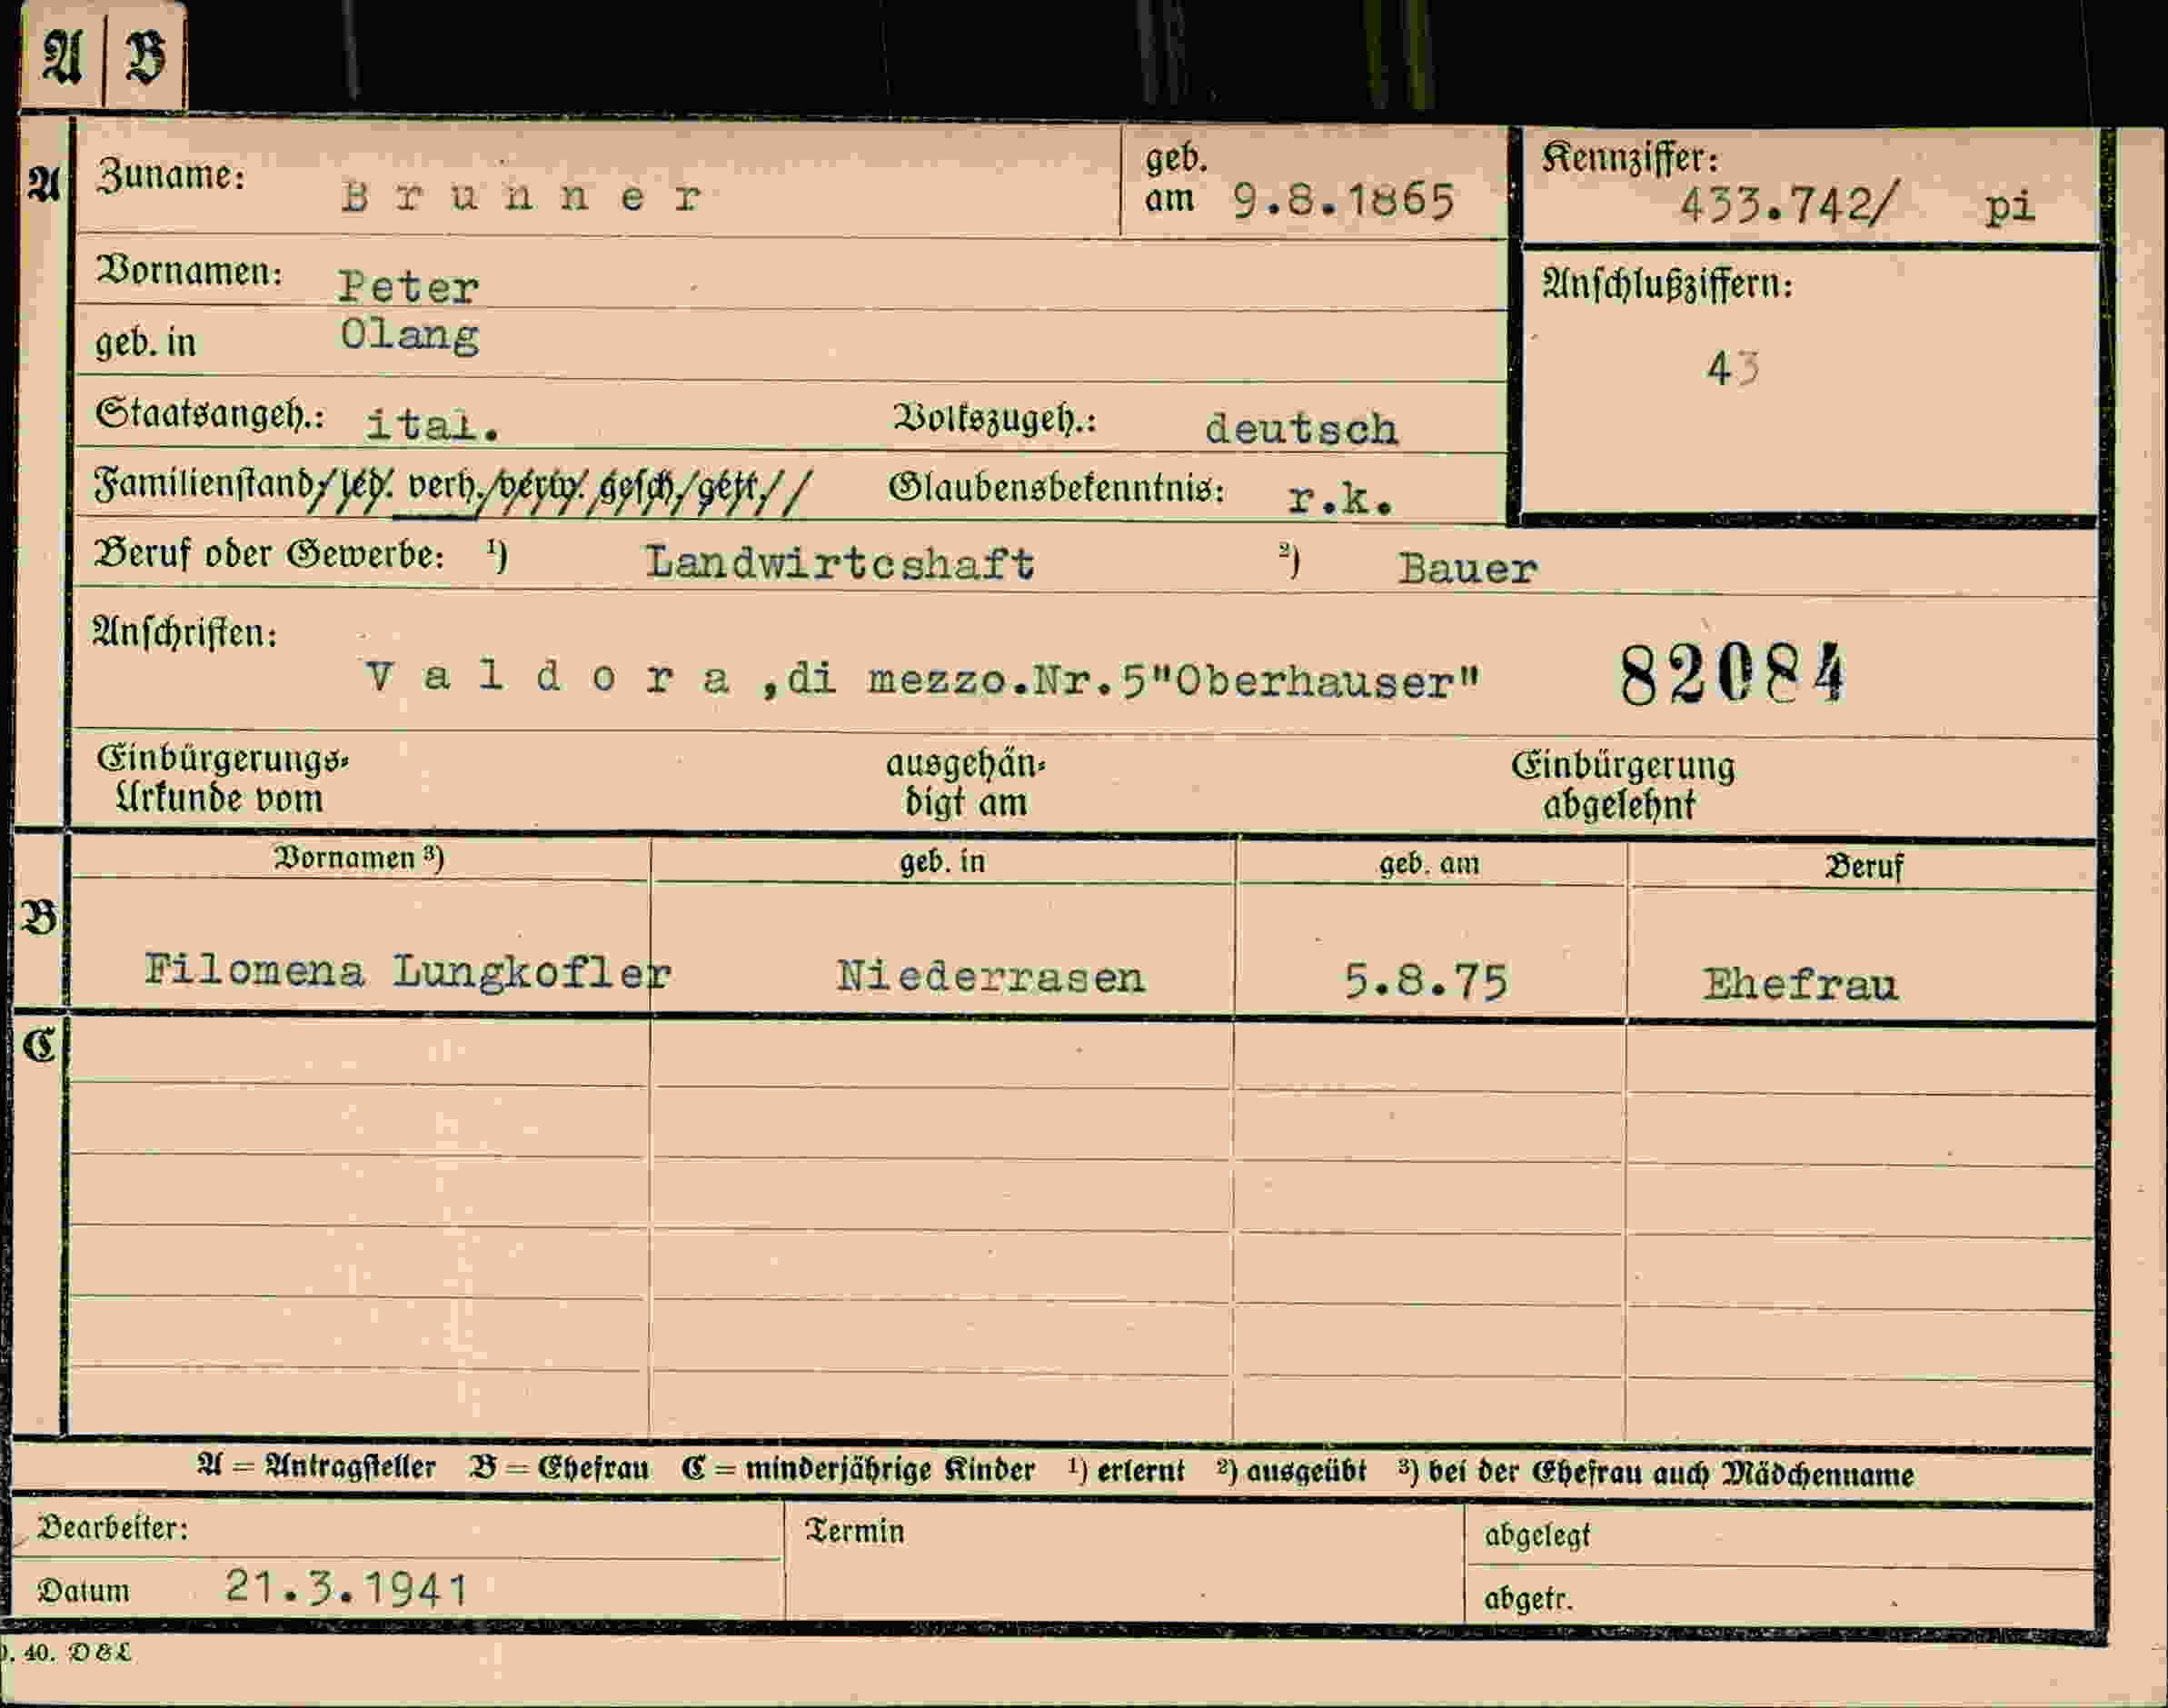 A B
A Zuname: Brunner geb. am 9.8.1865 Kennziffer: 433.742/ pi
Vornamen: Peter
Anschlußziffern: 43
geb. in Olang
Staatsangeh.: ital. Volkszugeh.: deutsch
Familienstand/led. verh./verw. gesch./getr.// Glaubensbekenntnis: r.k.
Beruf oder Gewerbe: ¹) Landwirtcshaft ²) Bauer
Anschriften: Valdora,di mezzo.Nr.5"Oberhauser" 82084
Einbürgerungs- ausgehän- Einbürgerung
Urkunde vom digt am abgelehnt
Vornamen ³) geb. in geb. am Beruf
B
Filomena Lungkofler Niederrasen 5.8.75 Ehefrau
C
A = Antragsteller B = Ehefrau C = minderjährige Kinder ¹) erlernt ²) ausgeübt ³) bei der Ehefrau auch Mädchenname
Bearbeiter: Termin abgelegt
Datum 21.3.1941 abgetr.
. 40. D&L